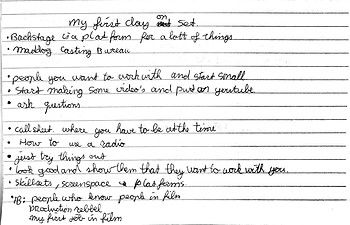 my first day on set.
• Backstage is a platform for a lott of things
• Maddog Casting Bureau
• people you want to work with and start small
• Start making some video's and put on youtube
• ask questions
• callsheet where you have to be at the time
• How to use a radio
• just try things out
• look good and show them that they want to work with you.
• skillsets, screenspace → platforms
• IB: people who know people in film
production rebbel
my first job in film